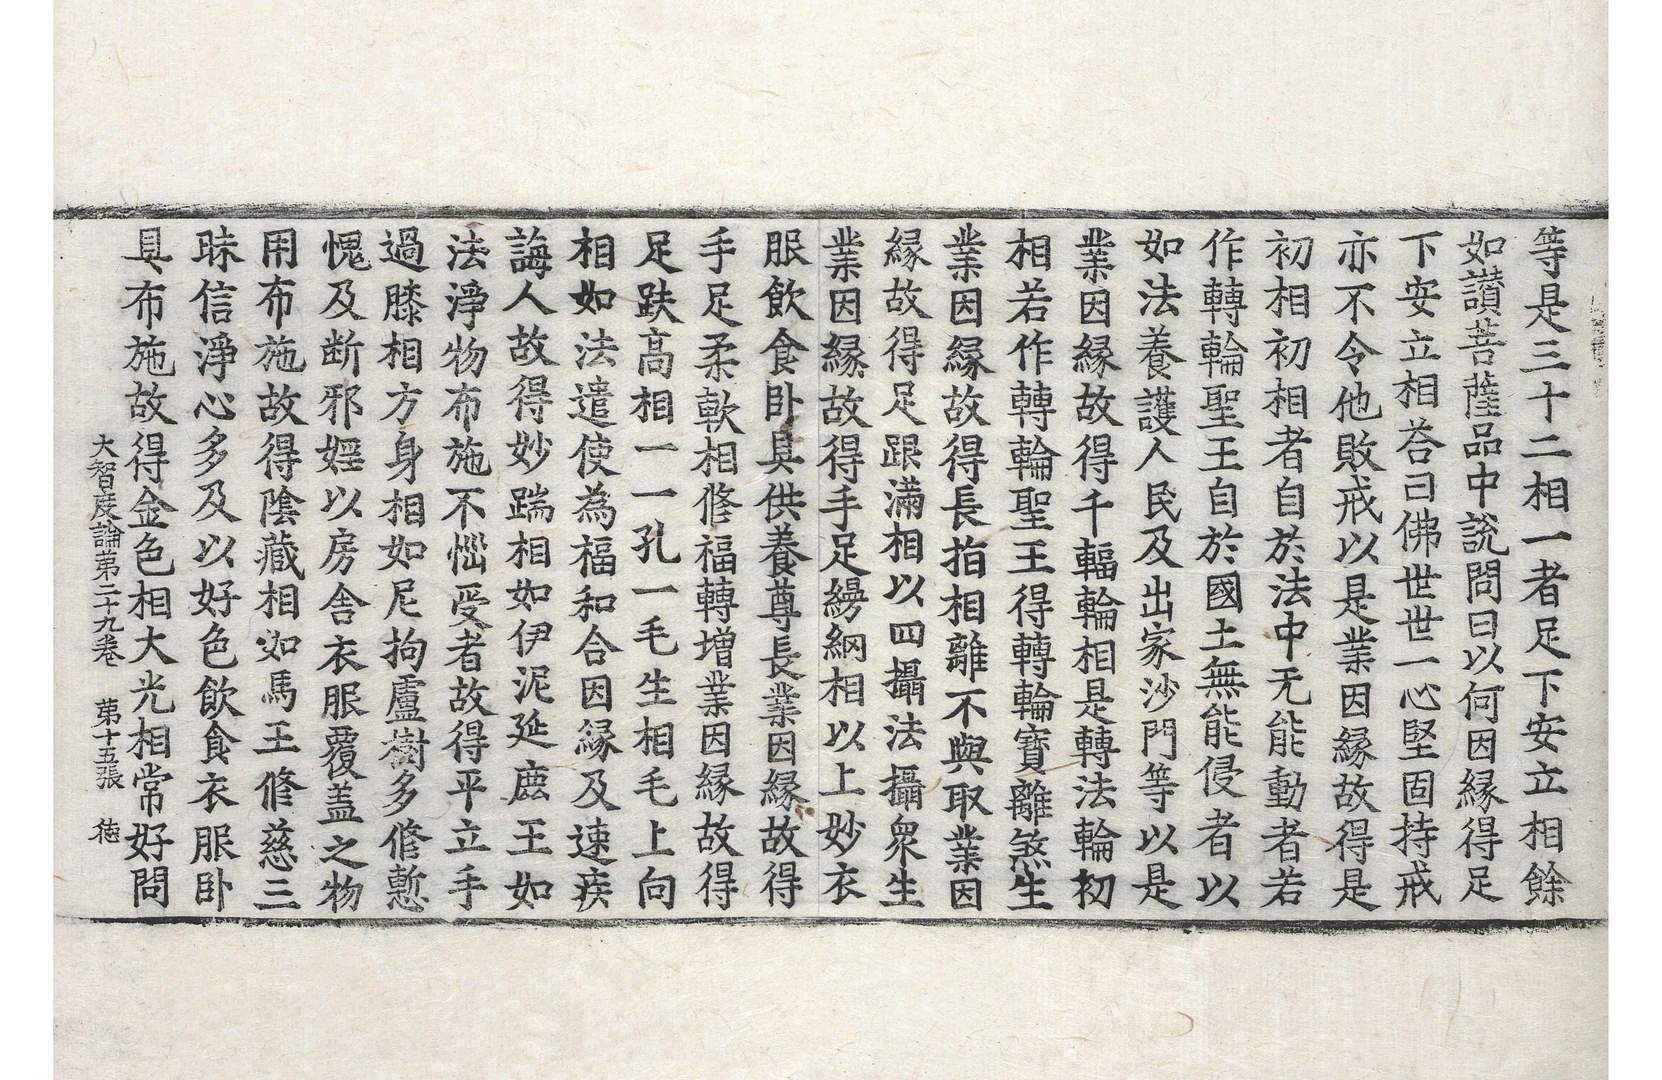 等是三十二相一者足下安立相餘
如讃菩薩品中說問曰以何因縁得足
下安立相荅曰佛世世一心堅固持戒
亦不令他敗戒以是業因縁故得是
初相初相者自於法中无能動者若
作轉輪聖王自於國土無能侵者以
如法養護人民及出家沙門等以是
業因縁故得千輻輪相是轉法輪初
相若作轉輪聖王得轉輪寶離煞生
業因縁故得長指相離不與取業因
縁故得足跟滿相以四攝法攝衆生
業因縁故得手足縵網相以上妙衣
服飮食卧具供養尊長業因縁故得
手足柔軟相修福轉增業因縁故得
足趺高相一一孔一毛生相毛上向
相如法遣使為福和合因縁及速疾
誨人故得妙踹相如伊泥延鹿王如
法淨物布施不惱受者故得平立手
過膝相方身相如尼拘盧樹多修慙
愧及断邪婬以房舍衣服覆盖之物
用布施故得陰藏相如馬王修慈三
昧信淨心多及以好色飮食衣服卧
具布施故得金色相大光相常好問
大智度論第二十九卷 第十五張 徳